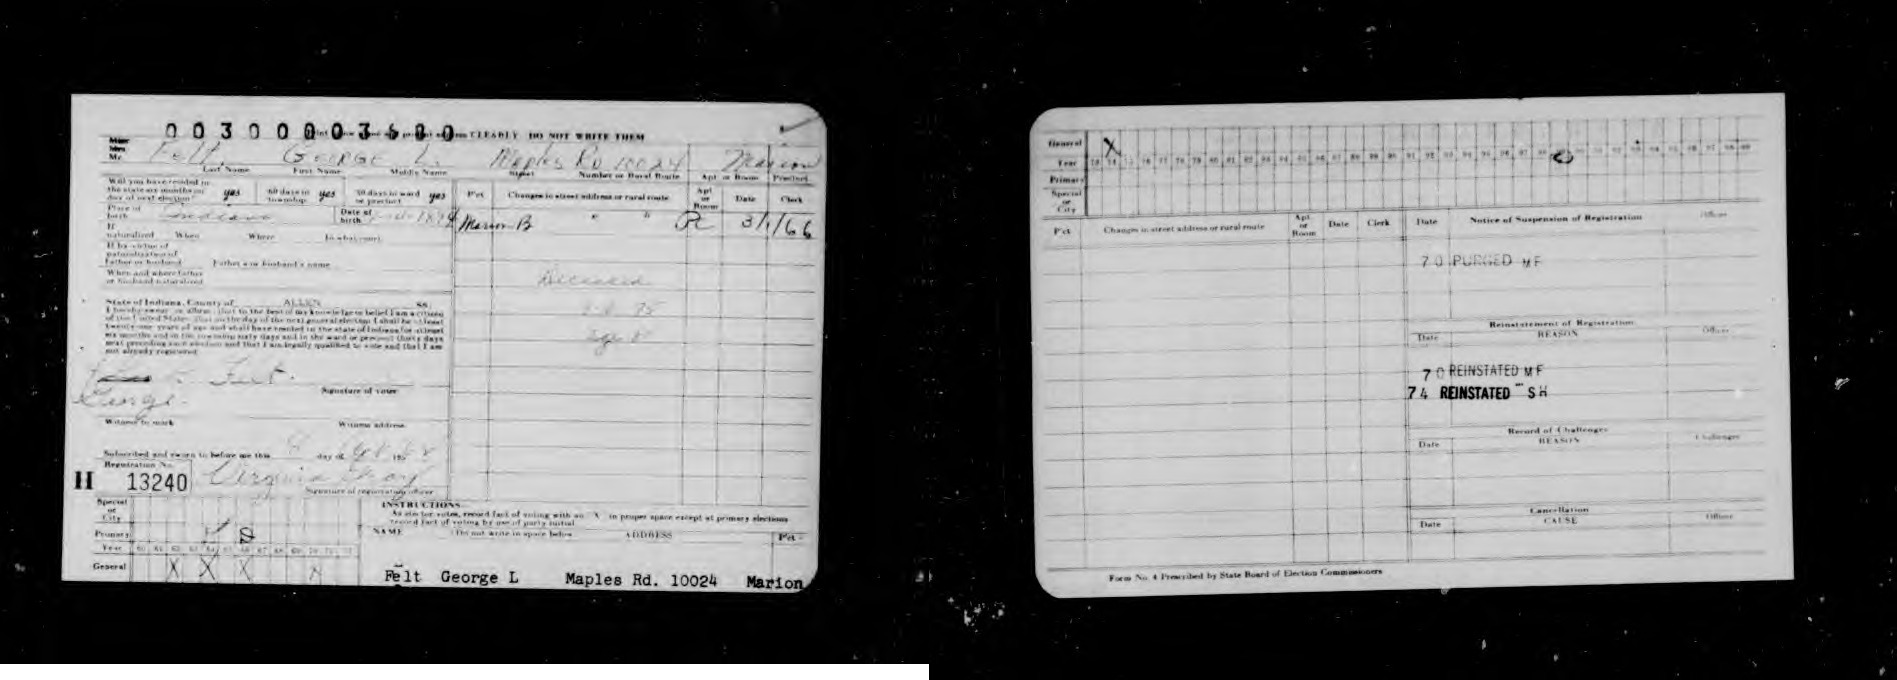 003000003680 CLEARLY DO NOT WRITE THEM
Mr. Felt, George L. Maples Rd 10024 Marion
Last Name First Name Middle Name Street Number or Rural Route Apt or Room Precinct
Will you have resided in the state six months on day of next election? yes 60 days in township yes 30 days in ward or precinct yes
Pct Changes in street address or rural route Apt or Room Date Clerk
Place of birth Indiana Date of birth
Marion B " " R 3/1/66
If naturalized When Where In what court
If by virtue of naturalization of Father or husband Father's or husband's name
When and where father or husband naturalized
Deceased
State of Indiana, County of ALLEN SS:
I hereby swear or affirm that to the best of my knowledge or belief I am a citizen
of the United States that on the day of the next general election I shall be at least
twenty-one years of age and shall have resided in the state of Indiana for at least
six months and in the township sixty days and in the ward or precinct thirty days
next preceding such election and that I am legally qualified to vote and that I am
not already registered
Felt
George
Signature of voter
Witness to mark Witness address
Subscribed and sworn to before me this 8 day of 19
Registration No.
H 13240 Virginia
Signature of registration officer
Special or City
Primary
Year 60 61 62 63 64 65 66 67 68 69 70 71 72
General X X X X
INSTRUCTIONS
As elector votes, record fact of voting with an X in proper space except at primary elections
record fact of voting by use of party initial
NAME (Do not write in space below) ADDRESS Pct
Felt George L Maples Rd. 10024 Marion
General X
Year 73 74 75 76 77 78 79 80 81 82 83 84 85 86 87 88 89 90 91 92 93 94 95 96 97 98 99
Primary
Special or City
Pct Changes in street address or rural route Apt or Room Date Clerk
Date Notice of Suspension of Registration Officer
70 PURGED MF
Reinstatement of Registration
Date REASON Officer
70 REINSTATED MF
74 REINSTATED SH
Record of Challenges
Date REASON Challenger
Cancellation
Date CAUSE Officer
Form No. 4 Prescribed by State Board of Election Commissioners